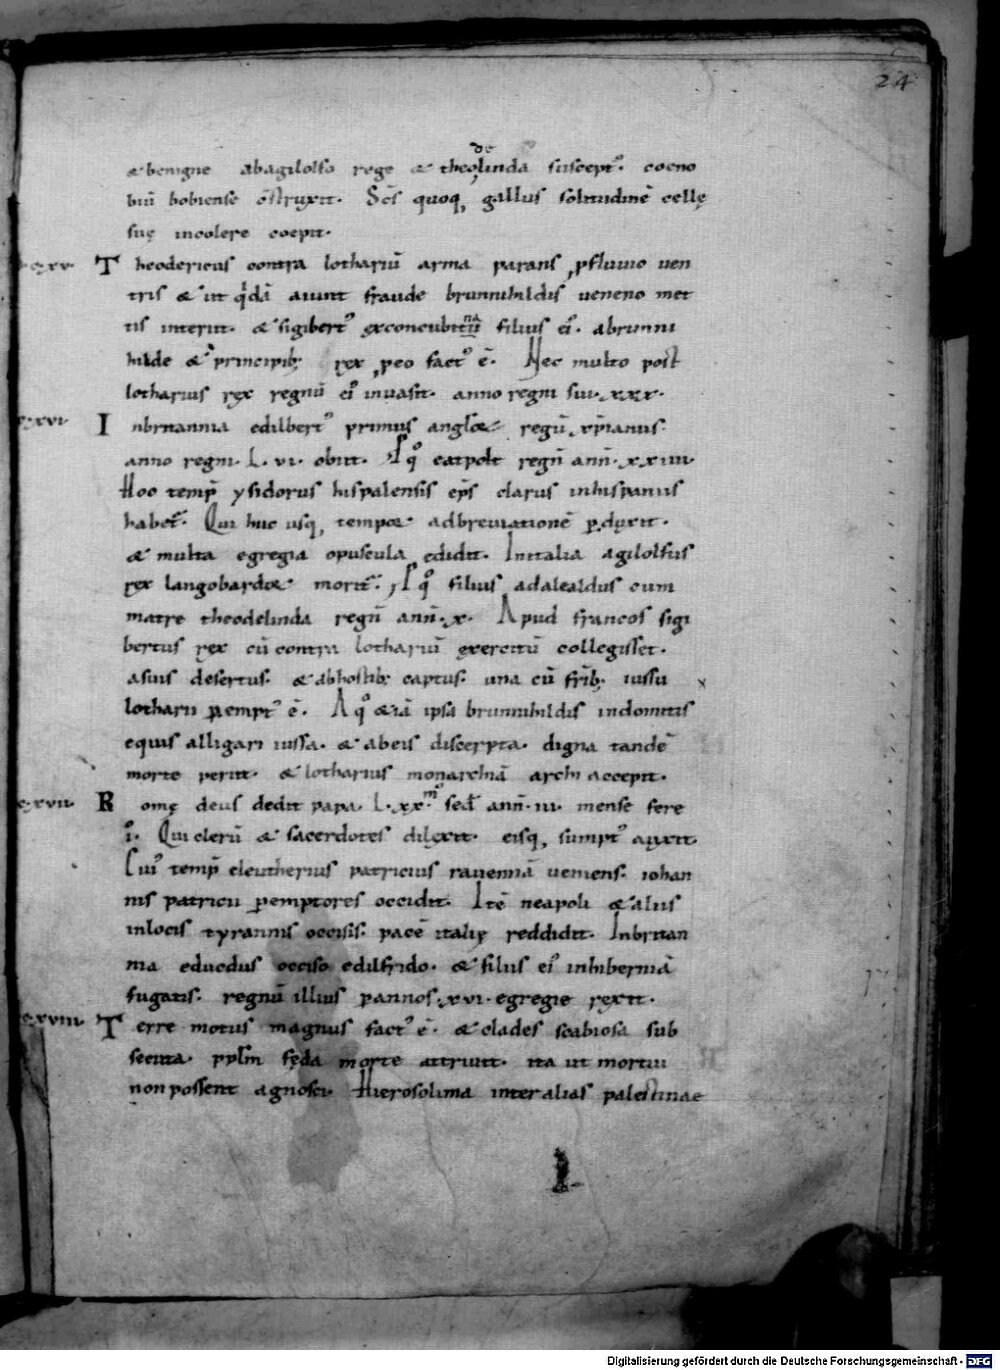 24
& benigne abagilolfo rege & theodelinda suscept᾿. coeno
biū bobiense c̄struxit. Sc̄s quoq, gallus solitudinē cellę
suę incolere coepit.
Theodericus contra lothariū arma parans ꝓfluuio uen
tris & ut q̇dā aiunt fraude brunnihildis ueneno met
tis interiit. & sigibert᾿ exconcubina filius ei᾿. abrunni
hilde & principib; rex ꝓeo fact᾿ ē. Nec multo post
lotharius rex regnū ei᾿ inuasit. anno regni sui. xxx.
cxvi. Inbritannia edilbert᾿ primus angloꝝ regū xp̄ianus
anno regni. L. vi. obiit. Cui᾿ regn̄ ann̄. xxiiii.
Hoc temp̄ ysidorus hispalensis ep̄s clarus inhispaniis
habet᾿. Qui huc usq, tempoꝝ adbreuiationē ꝑduxit.
& multa egregia opuscula edidit. Initalia agilolfus
rex langobardoꝝ morit᾿. filius adalealdus cum
matre theodelinda regn̄ ann̄. x. Apud francos sigi
bertus rex cū contra lothariū exercitū collegisset.
asuis desertus. & abhostib; captus. una cū fr̄ib; iussu
lotharii ꝑempt᾿ ē. A q᾿ &iā ipsa brunnihildis indomitis
equis alligari iussa. & abeis discerpta. digna tandē
morte periit. & lotharius monarchiā accepit.
cxvii. Romę deus dedit papa. L.xx.mo sed̄ ann̄. iii. mense fere
i᾿. Qui clerū & sacerdotes dilexit. eisq, sumpt᾿ auxit.
Cui᾿ temp̄ eleutherius patricius rauennā ueniens. iohan
nis patricii ꝑemptores occidit. Itē neapoli & aliis
inlocis tyrannis occisis. pacē italię reddidit. Inbritan
nia eduodus occiso edilfrido. & filiis ei᾿ inhiberniā
fugatis. regnū illius ꝑannos. xvi. egregie rexit.
cxviii. Terre motus magnus fact᾿ ē. & clades scabiosa sub
secuta. pplm̄ fęda morte attriuit. ita ut mortui
non possent agnosci. Hierosolima inter alias palestinae
Digitalisierung gefördert durch die Deutsche Forschungsgemeinschaft - DFG